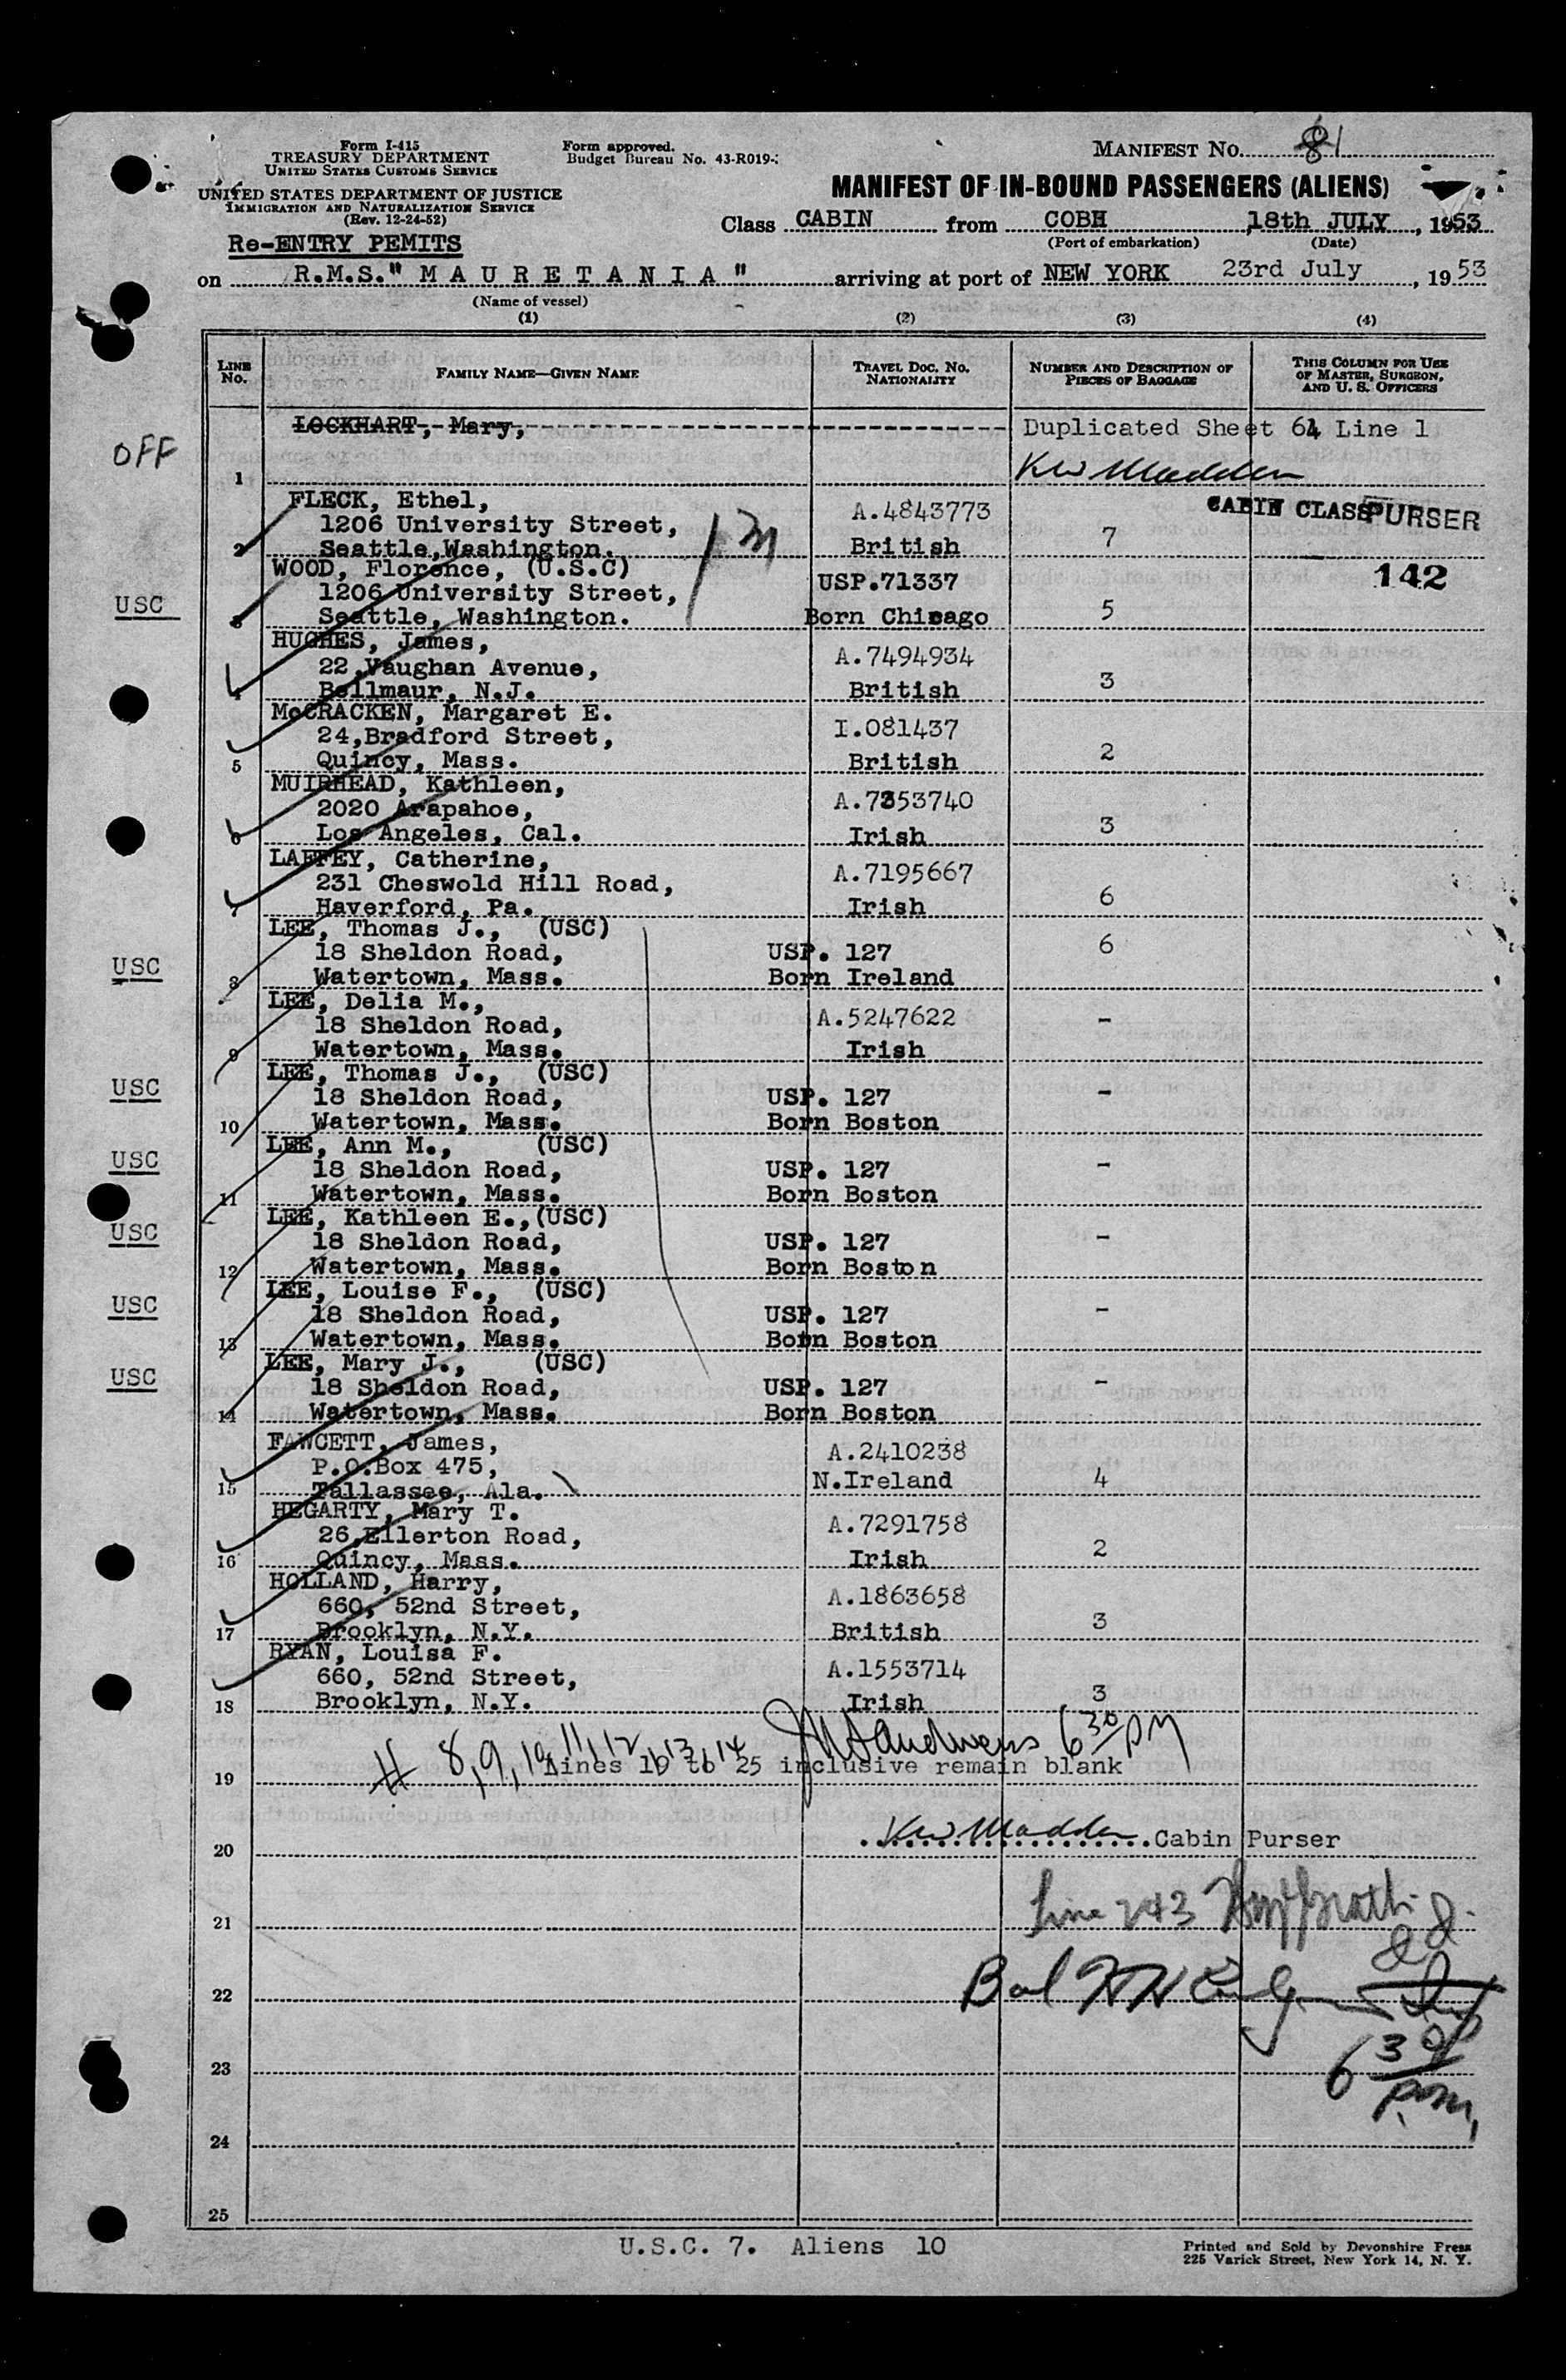 Form I-415
TREASURY DEPARTMENT
UNITED STATES CUSTOMS SERVICE
UNITED STATES DEPARTMENT OF JUSTICE
IMMIGRATION AND NATURALIZATION SERVICE
(Rev. 12-24-52)
Form approved.
Budget Bureau No. 43-R019-
MANIFEST No. 81
MANIFEST OF IN-BOUND PASSENGERS (ALIENS)
Class CABIN from COBH 18th JULY, 1953
(Port of embarkation) (Date)
Re-ENTRY PEMITS
on R.M.S." M A U R E T A N I A " arriving at port of NEW YORK 23rd July, 1953
(Name of vessel)
(1) (2) (3) (4)
LINE No. FAMILY NAME—GIVEN NAME TRAVEL DOC. NO. NATIONALITY NUMBER AND DESCRIPTION OF PIECES OF BAGGAGE THIS COLUMN FOR USE OF MASTER, SURGEON, AND U. S. OFFICERS
OFF
LOCKHART, Mary, Duplicated Sheet 61 Line 1
1 KW Madden
CABIN CLASS PURSER
142
FLECK, Ethel, A.4843773
1206 University Street, 7
2 Seattle, Washington. British
WOOD, Florence, (U.S.C) USP.71337
USC 1206 University Street, 5
3 Seattle, Washington. Born Chicago
HUGHES, James, A.7494934
22,Vaughan Avenue, 3
4 Bellmaur, N.J. British
McCRACKEN, Margaret E. I.081437
24,Bradford Street, 2
5 Quincy, Mass. British
MUIRHEAD, Kathleen, A.7353740
2020 Arapahoe, 3
6 Los Angeles, Cal. Irish
LAFFEY, Catherine, A.7195667
231 Cheswold Hill Road, 6
7 Haverford, Pa. Irish
LEE, Thomas J., (USC)
USC 18 Sheldon Road, USP. 127 6
8 Watertown, Mass. Born Ireland
LEE, Delia M., A.5247622
18 Sheldon Road, -
9 Watertown, Mass. Irish
LEE, Thomas J., (USC)
USC 18 Sheldon Road, USP. 127 -
10 Watertown, Mass. Born Boston
LEE, Ann M., (USC)
USC 18 Sheldon Road, USP. 127 -
11 Watertown, Mass. Born Boston
LEE, Kathleen E.,(USC)
USC 18 Sheldon Road, USP. 127 -
12 Watertown, Mass. Born Boston
LEE, Louise F., (USC)
USC 18 Sheldon Road, USP. 127 -
13 Watertown, Mass. Born Boston
LEE, Mary J., (USC)
USC 18 Sheldon Road, USP. 127 -
14 Watertown, Mass. Born Boston
FAWCETT, James, A.2410238
P.O.Box 475, 4
15 Tallassee, Ala. N.Ireland
HEGARTY, Mary T. A.7291758
26,Ellerton Road, 2
16 Quincy, Mass. Irish
HOLLAND, Harry, A.1863658
660, 52nd Street, 3
17 Brooklyn, N.Y. British
RYAN, Louisa F. A.1553714
660, 52nd Street, 3
18 Brooklyn, N.Y. Irish
# 8,9,10,11,12,13,14 6 30 PM
19 Lines 19 to 25 inclusive remain blank
20 KW Madden Cabin Purser
21 Line 2+3
22 Bal
6 30 p.m,
23
24
25
U.S.C. 7. Aliens 10
Printed and Sold by Devonshire Press
225 Varick Street, New York 14, N. Y.